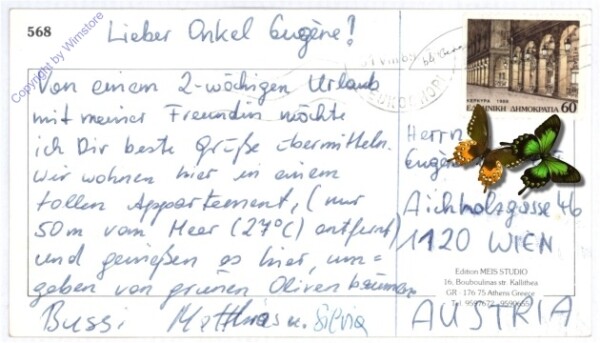 568
Copyright by Wimstore
Lieber Onkel Eugène!
Von einem 2-wöchigen Urlaub
mit meiner Freundin möchte
ich Dir beste Grüße übermitteln.
Wir wohnen hier in einem
tollen Appartement, (nur
50m vom Meer (27°C) entfernt)
und genießen es hier, um-
geben von grünen Olivenbäumen
Bussi Matthias u. Silvia
ΕΛΛΗΝΙΚΗ ΔΗΜΟΚΡΑΤΙΑ 60
Herrn
Eugène
Aichholzgasse 46
1120 WIEN
Edition MEIS STUDIO
16, Bouboulinas str. Kallithea
GR - 176 75 Athens Greece
AUSTRIA